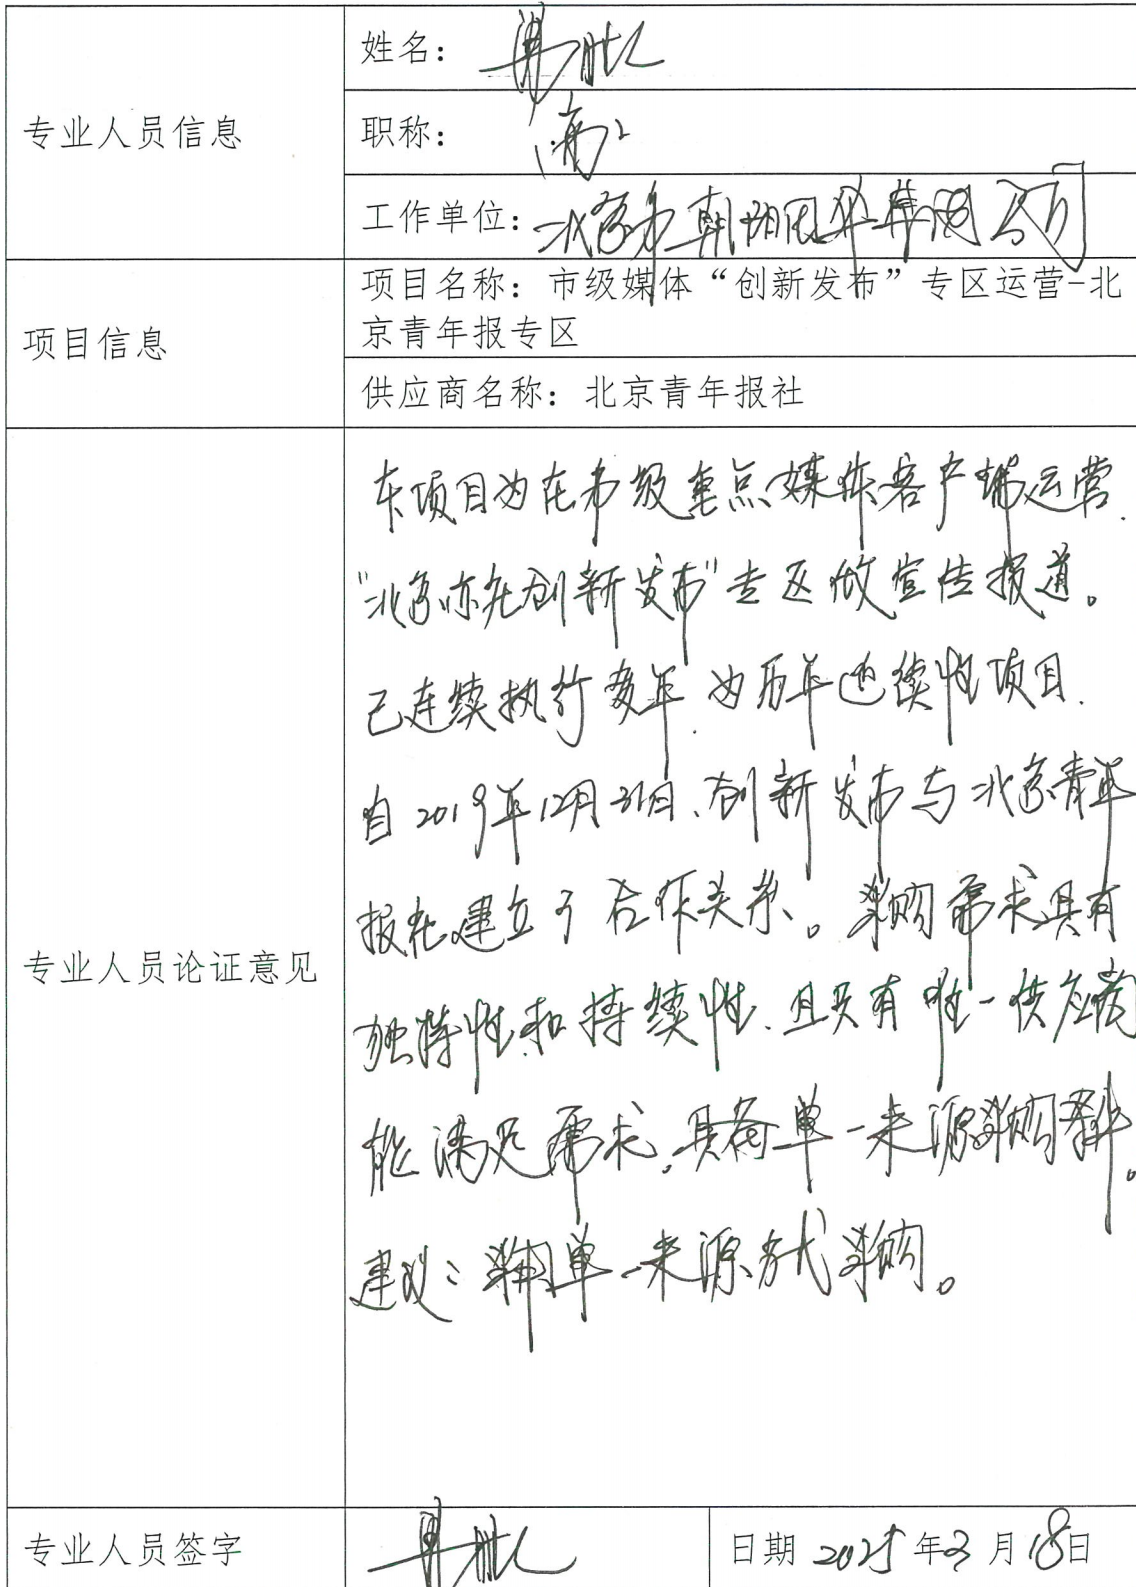 专业人员信息
姓名：
职称：高工
工作单位：北京市朝阳园林集团公司
项目信息
项目名称：市级媒体“创新发布”专区运营-北
京青年报专区
供应商名称：北京青年报社
专业人员论证意见
本项目为在市级重点媒体客户端运营
“北京亦庄创新发布”专区做宣传报道。
已连续执行多年，为历年延续性项目．
自2019年12月31日、创新发布与北京青年
报社建立了合作关系。采购需求具有
独特性和持续性、且只有唯一供应商
能满足需求，具备单一来源采购条件。
建议：采用单一来源方式采购。
专业人员签字
日期 2025年3月18日